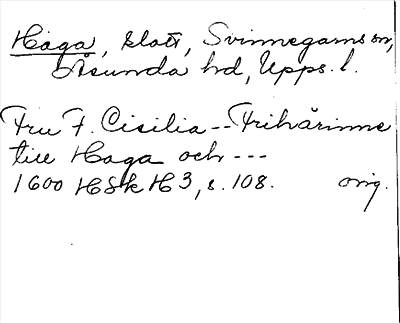 Haga, slott, Svinnegarns sn,
Åsunda hd, Upps. l.
Fru F. Cisilia -- Friherinne
till Haga och ---
1600 HSk H3, s. 108. orig.